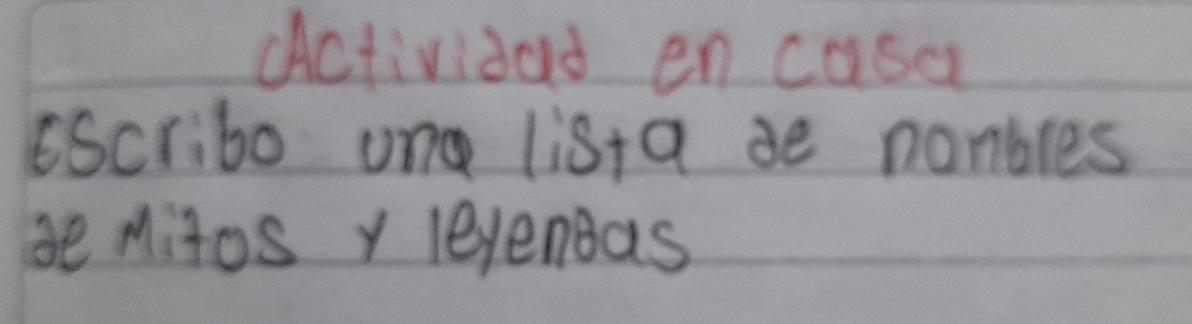 Actividad en casa
Escribo una lista de nombres
de Mitos y leyendas